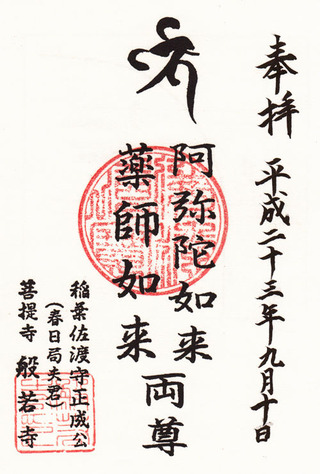 奉拝
平成二十三年九月十日
阿弥陀如来
薬師如来
両尊
稲葉佐渡守正成公
(春日局夫君)
菩提寺 般若寺